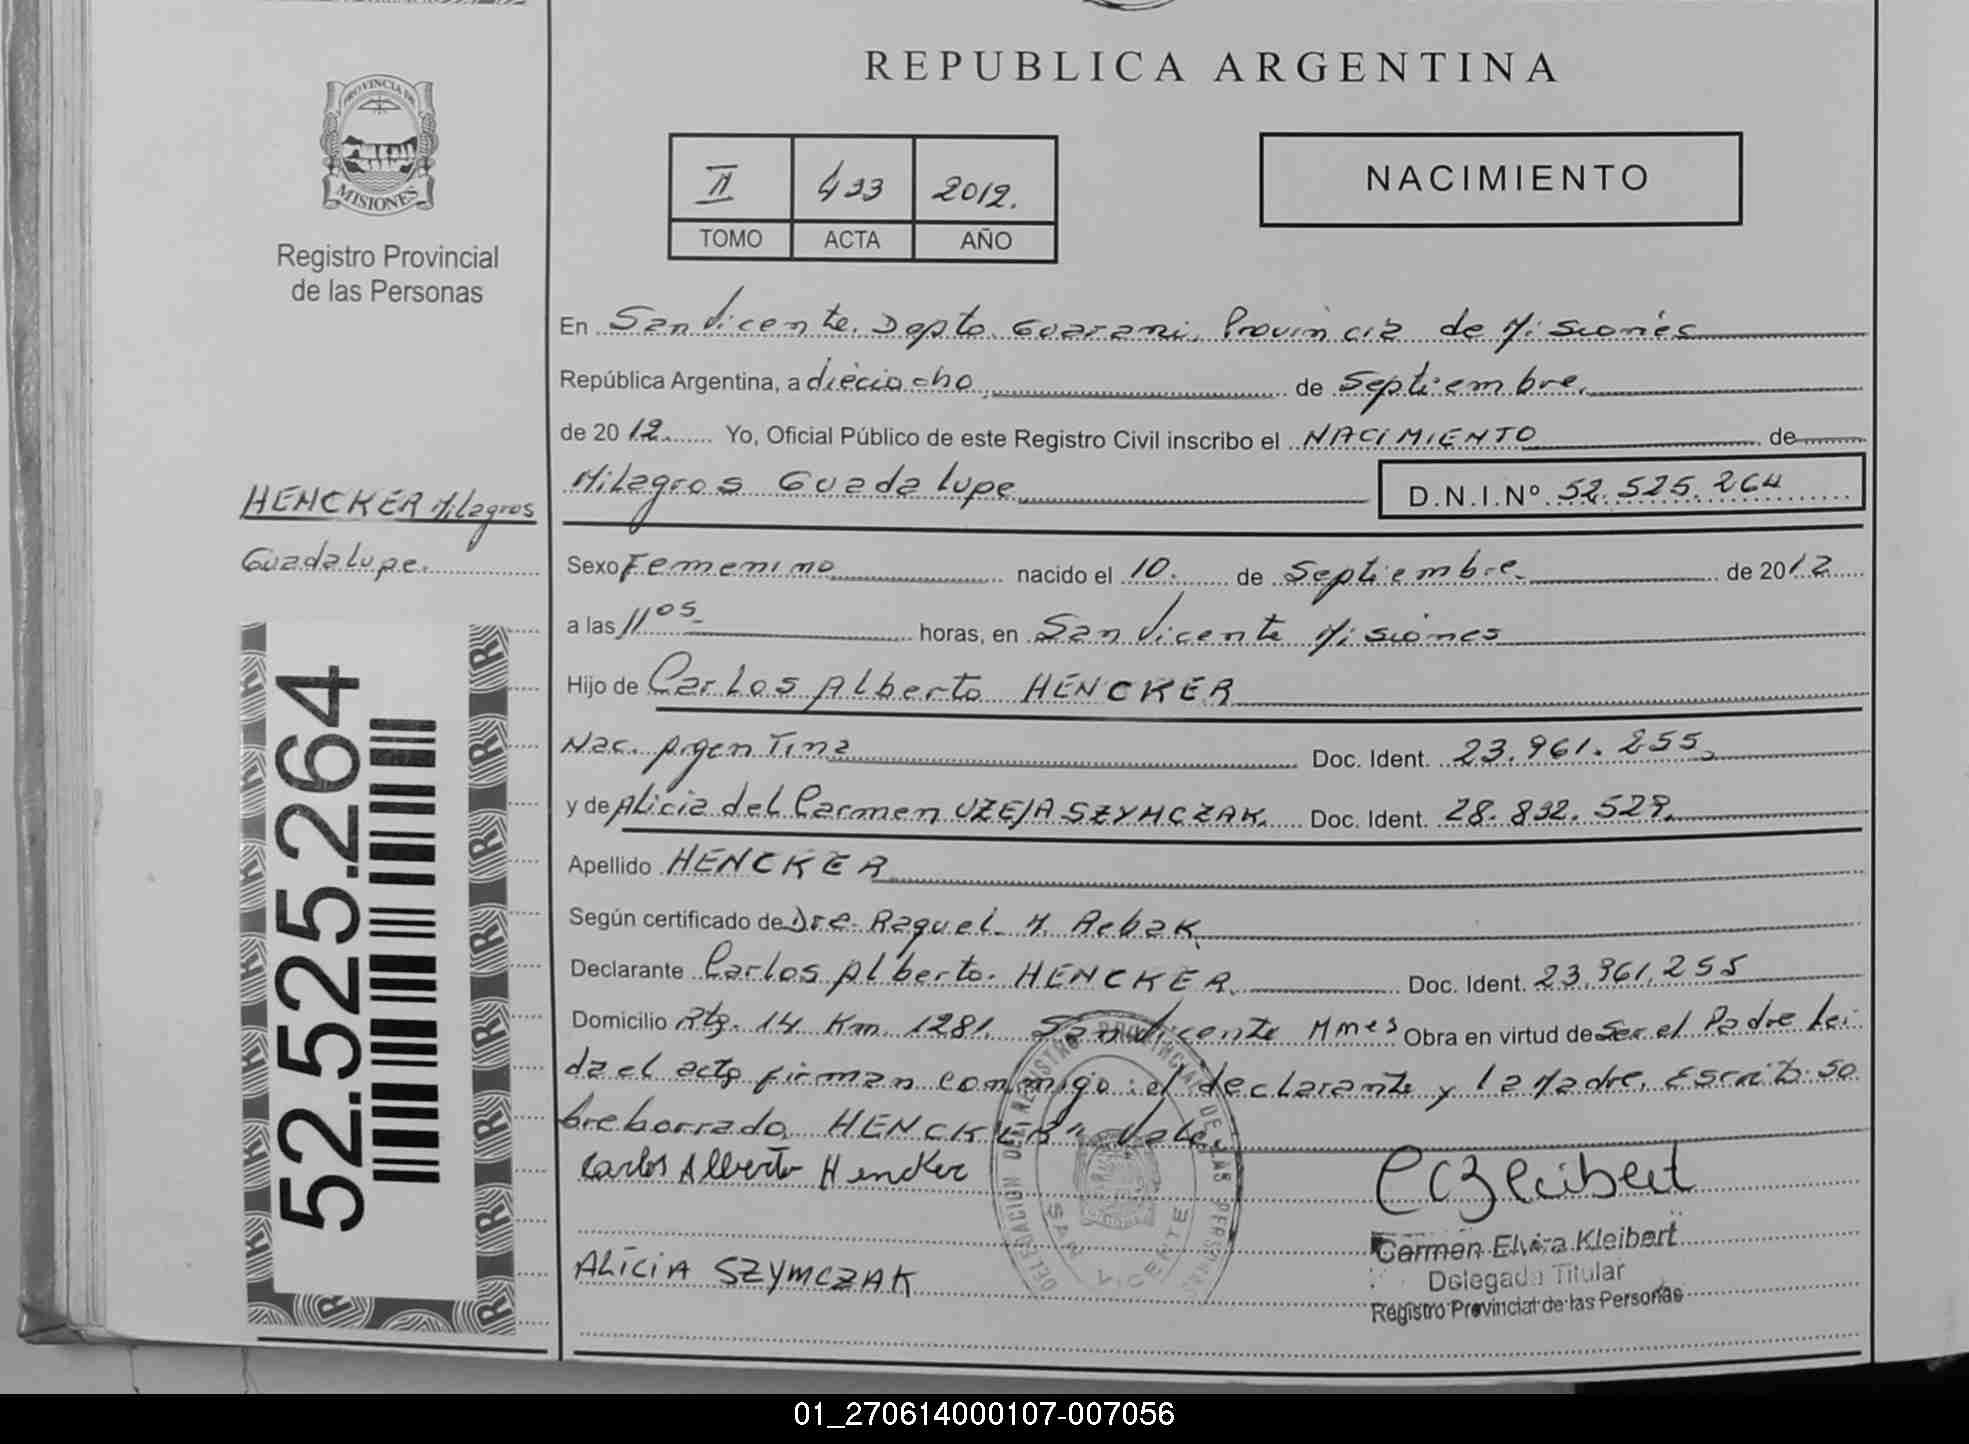 REPUBLICA ARGENTINA
PROVINCIA DE
MISIONES
Registro Provincial
de las Personas
II 433 2012.
TOMO ACTA AÑO
NACIMIENTO
En San Vicente. Depto. Guarani. Provincia de Misiones
República Argentina, a dieciocho de Septiembre.
de 2012. Yo, Oficial Público de este Registro Civil inscribo el NACIMIENTO de
Milagros Guadalupe D.N.I.Nº 52.525.264
HENCKER Milagros
Guadalupe.
Sexo Femenino nacido el 10. de Septiembre. de 2012
a las 11 05 horas, en San Vicente Misiones
Hijo de Carlos Alberto HENCKER
Nac. Argentina Doc. Ident. 23.961.255
y de Alicia del Carmen UZEJA SZYMCZAK. Doc. Ident. 28.832.529.
Apellido HENCKER
Según certificado de Dra. Raquel. M. Rebak
Declarante Carlos Alberto. HENCKER. Doc. Ident. 23.961.255
Domicilio Rta. 14 Km. 1281. San Vicente Mnes Obra en virtud de Ser el Padre Lei
da el acta firman conmigo: el declarante y la Madre. Escrito so
breborrado HENCKER" Vale.
Carlos Alberto Hencker
ALiCiA SZYMCZAK
DELEGACION DEL REGISTRO PROVINCIAL DE LAS PERSONAS
SAN VICENTE
Carmen Elvira Kleibert
Delegada Titular
Registro Provincial de las Personas
52.525.264
01_270614000107-007056